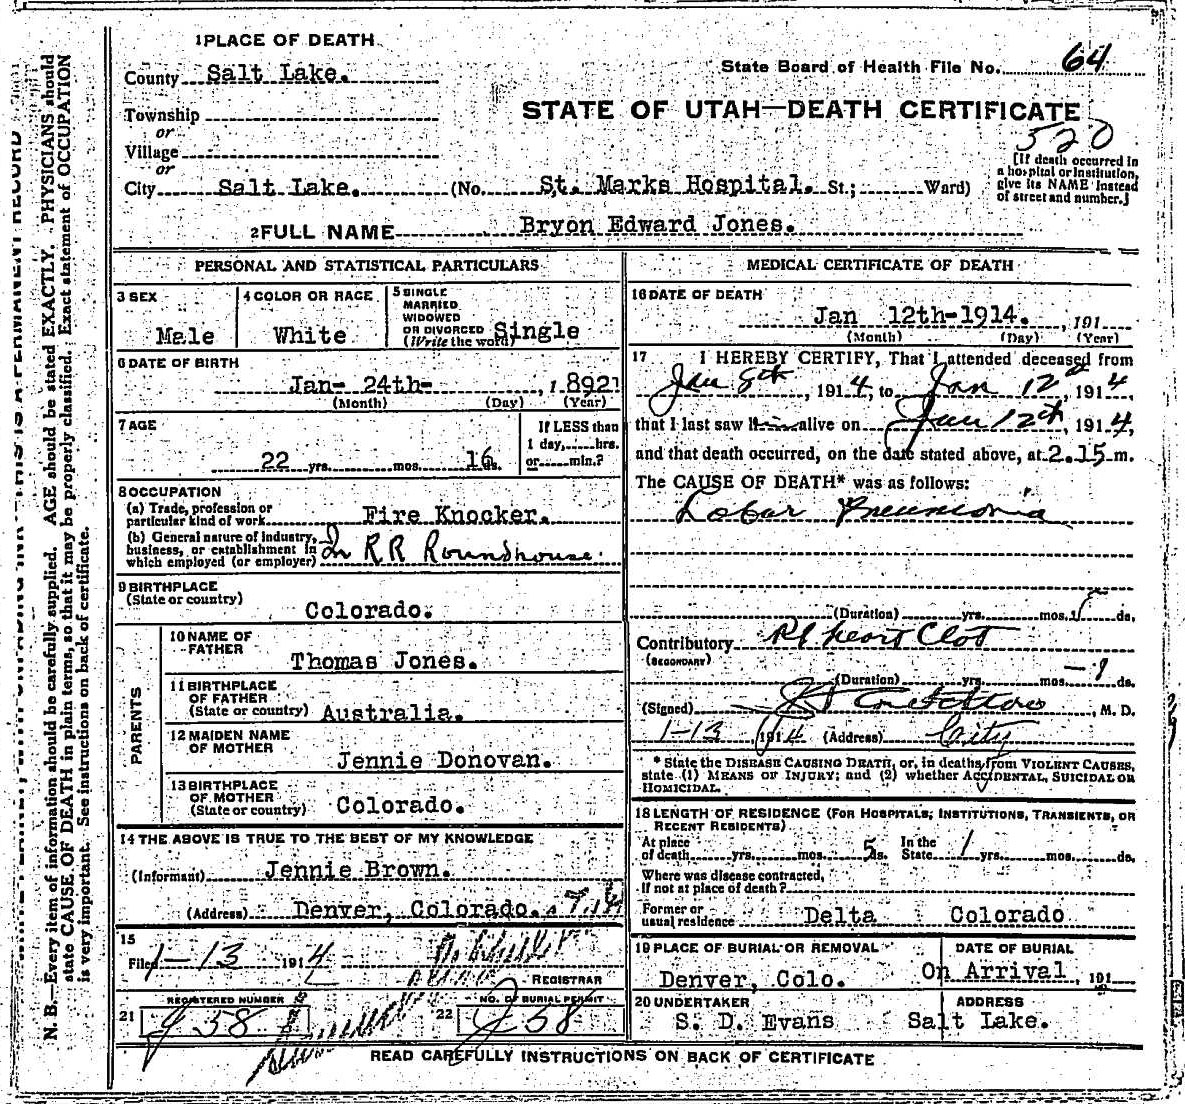 1 PLACE OF DEATH
County Salt Lake.
State Board of Health File No. 64
STATE OF UTAH—DEATH CERTIFICATE
520
Township
or
Village
or
City Salt Lake. (No. St. Marks Hospital. St.; Ward)
[If death occurred in
a hospital or institution,
give its NAME instead
of street and number.]
2 FULL NAME Bryon Edward Jones.
PERSONAL AND STATISTICAL PARTICULARS
3 SEX
Male
4 COLOR OR RACE
White
5 SINGLE
MARRIED
WIDOWED
OR DIVORCED
(Write the word) Single
6 DATE OF BIRTH
Jan- 24th- , 1892
(Month) (Day) (Year)
7 AGE
22 yrs. mos. 16 ds.
If LESS than
1 day, hrs.
or min.?
8 OCCUPATION
(a) Trade, profession or
particular kind of work Fire Knocker.
(b) General nature of industry,
business, or establishment in
which employed (or employer) In RR Roundhouse.
9 BIRTHPLACE
(State or country)
Colorado.
PARENTS
10 NAME OF
FATHER
Thomas Jones.
11 BIRTHPLACE
OF FATHER
(State or country) Australia.
12 MAIDEN NAME
OF MOTHER
Jennie Donovan.
13 BIRTHPLACE
OF MOTHER
(State or country) Colorado.
14 THE ABOVE IS TRUE TO THE BEST OF MY KNOWLEDGE
(Informant) Jennie Brown.
(Address) Denver, Colorado.
15
Filed 1-13 1914
REGISTRAR
REGISTERED NUMBER
21 J 58
NO. OF BURIAL PERMIT
22 J 58
MEDICAL CERTIFICATE OF DEATH
16 DATE OF DEATH
Jan 12th-1914. , 191
(Month) (Day) (Year)
17 I HEREBY CERTIFY, That I attended deceased from
Jan 8th , 1914, to Jan 12th , 1914,
that I last saw him alive on Jan 12th , 1914,
and that death occurred, on the date stated above, at 2.15 m.
The CAUSE OF DEATH* was as follows:
Lobar Pneumonia
(Duration) yrs. mos. ds.
Contributory Rt heart Clot
(SECONDARY)
(Duration) yrs. mos. -1 ds.
(Signed) , M. D.
1-13 , 1914 (Address) City
* State the DISEASE CAUSING DEATH, or, in deaths from VIOLENT CAUSES,
state (1) MEANS OF INJURY; and (2) whether ACCIDENTAL, SUICIDAL OR
HOMICIDAL.
18 LENGTH OF RESIDENCE (FOR HOSPITALS, INSTITUTIONS, TRANSIENTS, OR
RECENT RESIDENTS)
At place
of death yrs. mos. 5 ds.
In the
State 1 yrs. mos. ds.
Where was disease contracted,
if not at place of death?
Former or
usual residence Delta Colorado
19 PLACE OF BURIAL OR REMOVAL
Denver, Colo.
DATE OF BURIAL
On Arrival , 191
20 UNDERTAKER
S. D. Evans
ADDRESS
Salt Lake.
READ CAREFULLY INSTRUCTIONS ON BACK OF CERTIFICATE
THIS IS A PERMANENT RECORD
N. B.—Every item of information should be carefully supplied. AGE should be stated EXACTLY. PHYSICIANS should
state CAUSE OF DEATH in plain terms, so that it may be properly classified. Exact statement of OCCUPATION
is very important. See instructions on back of certificate.